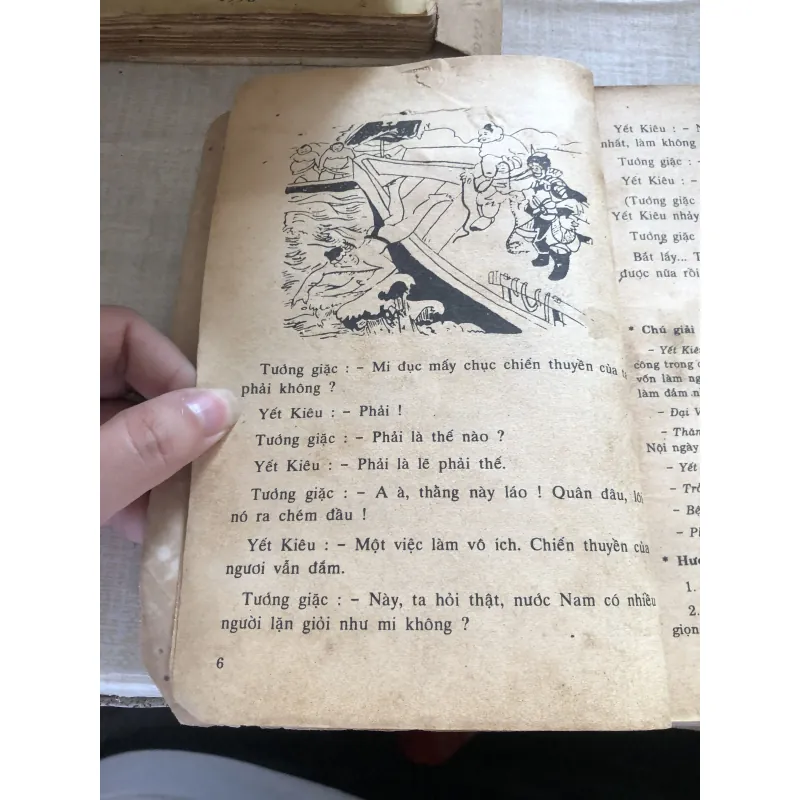 Tướng giặc : – Mi đục mấy chục chiến thuyền của
phải không ?
Yết Kiêu : – Phải !
Tướng giặc : – Phải là thế nào ?
Yết Kiêu : – Phải là lẽ phải thế.
Tướng giặc : – A à, thằng này láo ! Quân đâu, lôi
nó ra chém đầu !
Yết Kiêu : – Một việc làm vô ích. Chiến thuyền của
ngươi vẫn đắm.
Tướng giặc : – Này, ta hỏi thật, nước Nam có nhiều
người lặn giỏi như mi không ?
6
Yết Kiêu : –
nhất, làm không
Tướng giặc : –
Yết Kiêu : –
(Tướng giặc
Yết Kiêu nhảy
Tướng giặc
Bắt lấy...
được nữa rồi
* Chú giải
– Yết Kiêu
công trong
vốn làm
làm đắm
– Đại
–
Nội ngày
– Yết
–
–
–
*
1.
2.